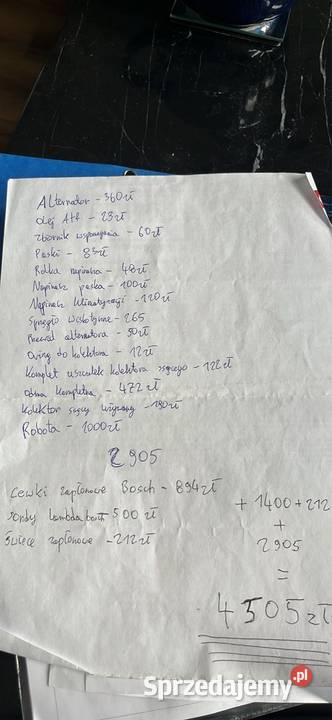 Alternator - 360zł
olej Atf - 23zł
zbiornik wspomagania - 60zł
Paski - 83zł
Rolka napinalna - 48zł
Napinacz paska - 100zł
Napinacz klimatyzacji - 120zł
Sprzęgło wiskotyczne - 265
Przewód alternatora - 50zł
Oring do kolektora - 12zł
Komplet uszczelek kolektora ssącego - 122zł
odma kompletna - 472zł
kolektor ssący używany - 190zł
Robota - 1000zł
2905
cewki zapłonowe Bosch - 894zł
sondy lambda bosch - 500 zł
świece zapłonowe - 212zł
+ 1400 + 212
+
2905
=
4505zł
Sprzedajemy.pl